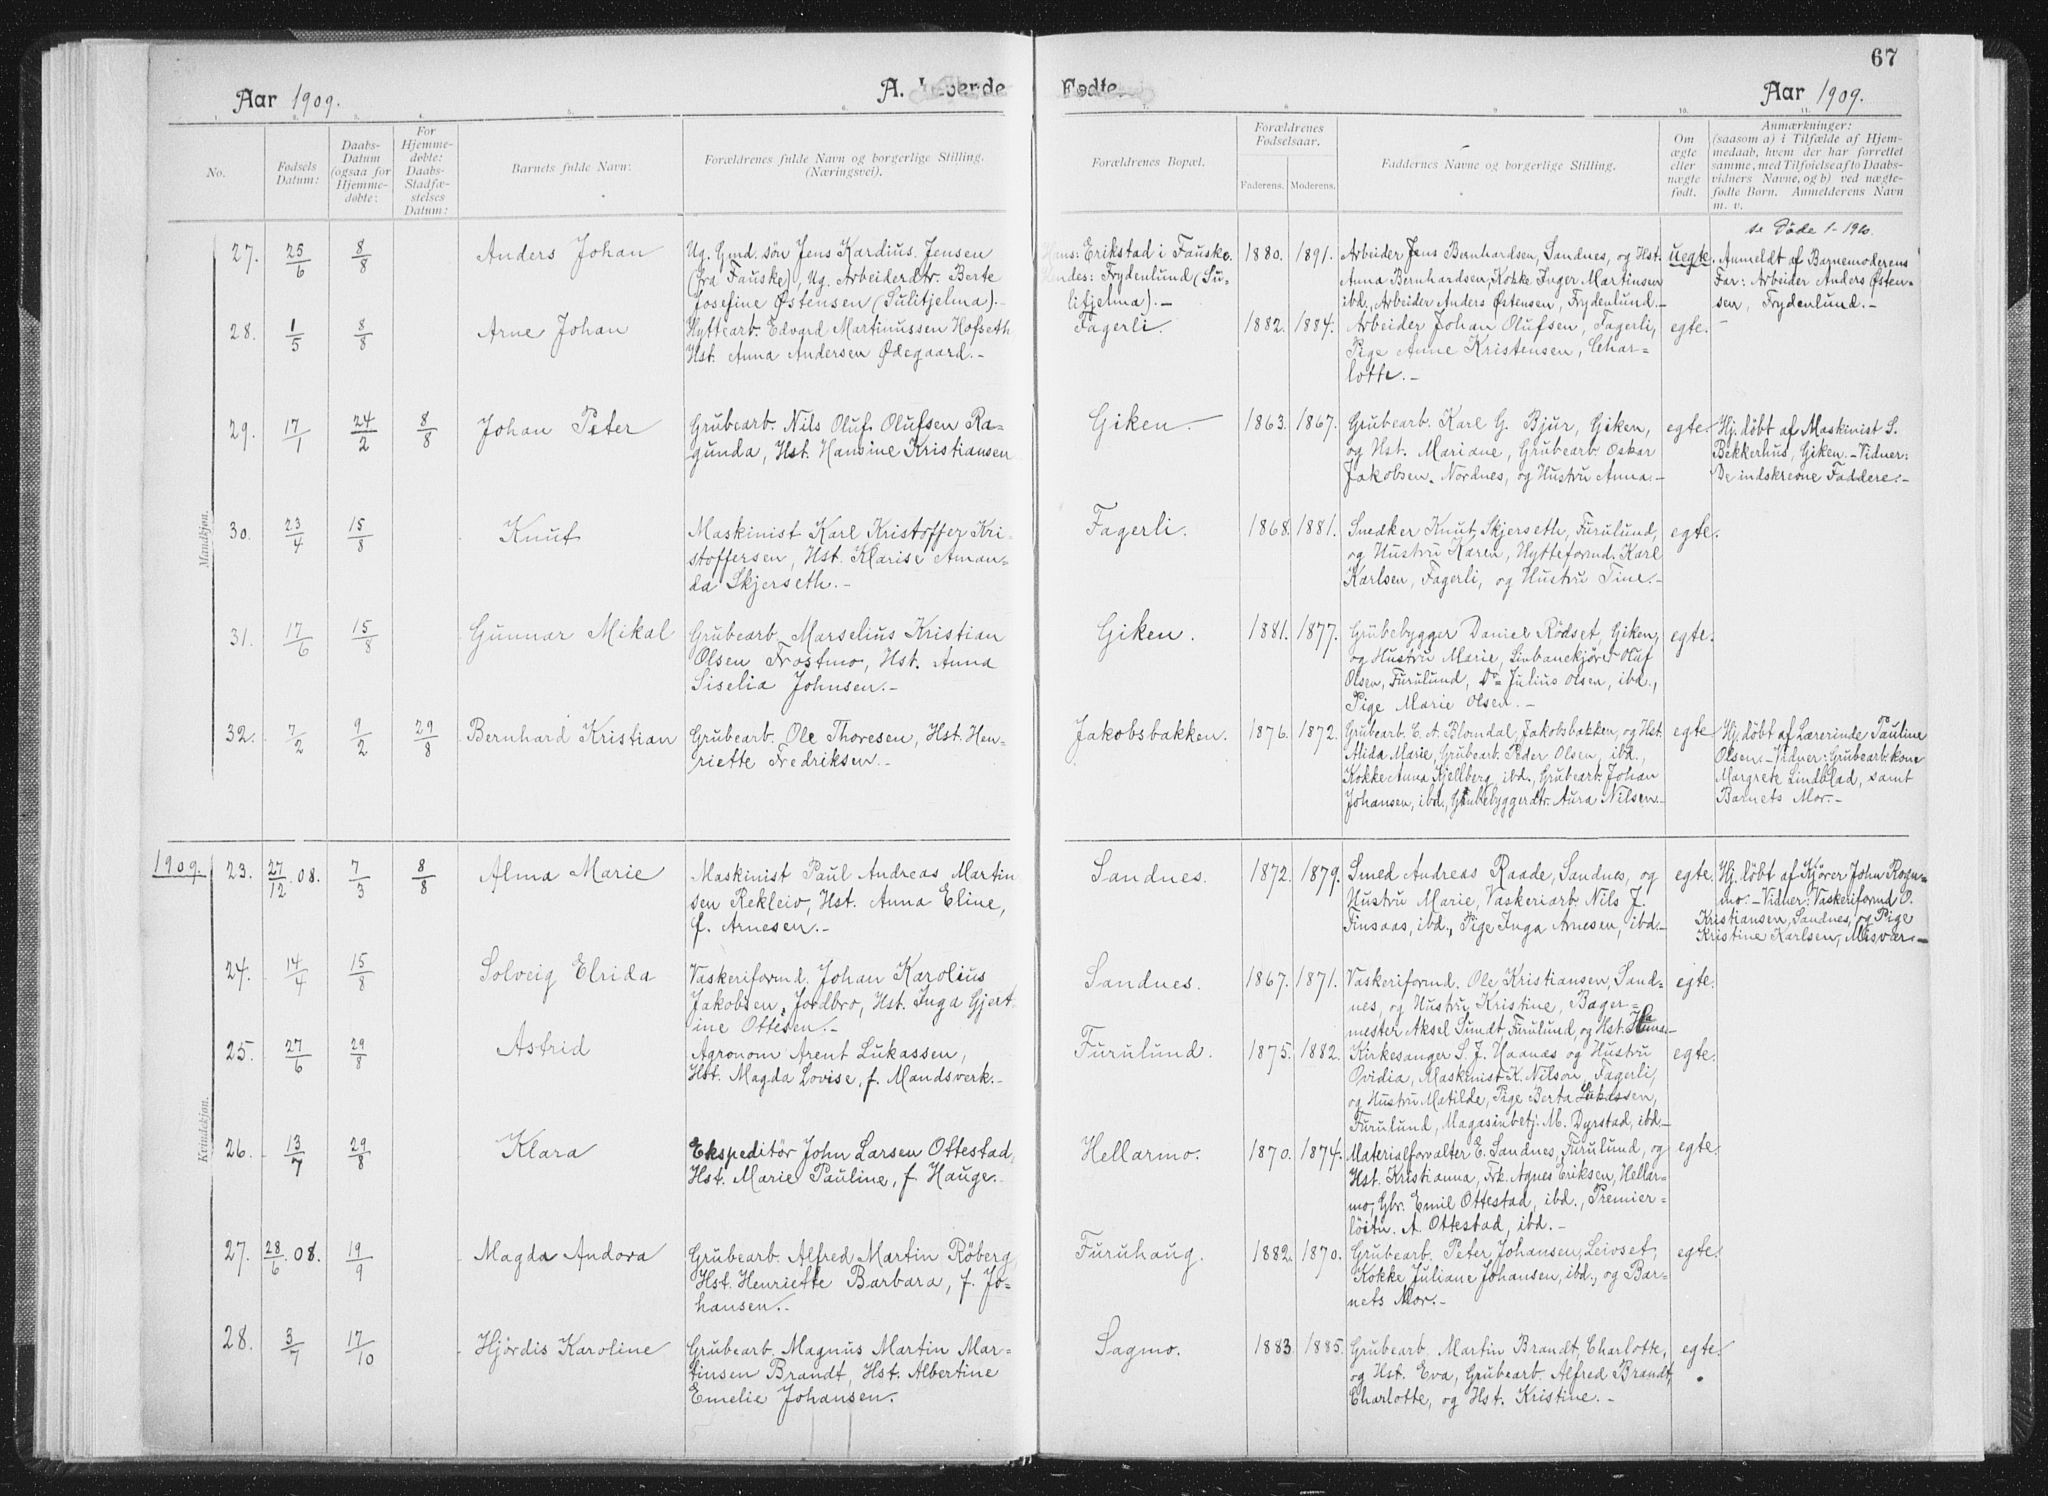 67
Aar 1909.
A. Levende
Fødte.
Aar 1909.
1. 2. 3. 4. 5. 6. 7. 8. 9. 10. 11.
No.
Fødsels
Datum:
Daabs-
Datum
(ogsaa for
Hjemme-
døbte:
For
Hjemme-
døbte:
Daabs-
Stadfæ-
stelses
Datum:
Barnets fulde Navn:
Forældrenes fulde Navn og borgerlige Stilling.
(Næringsvei).
Forældrenes Bopæl.
Forældrenes
Fødselsaar.
Faderens. Moderens.
Faddernes Navne og borgerlige Stilling.
Om
ægte
eller
nægte
født.
Anmærkninger:
(saasom a) i Tilfælde af Hjem-
medaab, hvem der har forrettet
samme, med Tilføielse af to Daabs-
vidners Navne, og b) ved nægte-
fødte Børn. Anmelderens Navn
m. v.
Mandkjøn.
27. 25/6 8/8 Anders Johan
Ug. Gmd. søn Jens Kardius Jensen
(fra Fauske), Ug. Arbeiderdtr. Berte
Josefine Østensen (Sulitjelma).-
Hans: Erikstad i Fauske.
Hendes: Frydenlund (Su-
litjelma).-
1880. 1891.
Arbeider Jens Bernhardsen, Sandnes, og Hst.
Anna Bernhardsen, Kokke Inger Martinsen
ibd., Arbeider Anders Østensen, Frydenlund.-
uegte.
se Døde 1-1910.
Anmeldt af Barnemoderens
Far: Arbeider Anders Østen-
sen, Frydenlund.-
28. 1/5 8/8 Arne Johan
Hyttearb. Edvard Martinussen Hofseth,
Hst. Anna Andersen Ødegaard.-
Fagerli.
1882. 1884.
Arbeider Johan Olufsen, Fagerli,
Pige Anne Kristensen, Char-
lotte.-
egte.
29. 17/1 24/2 8/8 Johan Peter
Grubearb. Nils Oluf Olufsen Ra-
gunda, Hst. Hansine Kristiansen
Giken.
1863. 1867.
Grubearb. Karl G. Bjur, Giken,
og Hst. Mariane, Grubearb. Oskar
Jakobsen, Nordnes, og Hustru Anna.-
egte.
Hj. døbt af Maskinist S.
Bekkerhus, Giken.-Vidner:
De indskrevne Faddere.-
30. 23/4 15/8 Knut
Maskinist Karl Kristoffer Kri-
stoffersen, Hst. Klarise Aman-
da Skjerseth.-
Fagerli.
1868. 1881.
Snedker Knut Skjerseth, Furulund,
og Hustru Karen, Hytteformd. Karl
Karlsen, Fagerli, og Hustru Tine.-
egte.
31. 17/6 15/8 Gunnar Mikal
Grubearb. Marselius Kristian
Olsen Frostmo, Hst. Anna
Siselia Johnsen.-
Giken.
1881. 1877.
Grubebygger Daniel Rødset, Giken,
og Hustru Marie, Linbanekjører Oluf
Olsen, Furulund, Do Julius Olsen, ibd.,
Pige Marie Olsen.-
egte.
32. 7/2 9/2 29/8 Bernhard Kristian
Grubearb. Ole Thoresen, Hst. Hen-
riette Fredriksen.-
Jakobsbakken.
1876. 1872.
Grubearb. E. A. Blomdal, Jakobsbakken, og Hst.
Alida Marie, Grubearb. Peder Olsen, ibd.,
Kokke Anna Kjellberg, ibd., Grubearb. Johan
Johansen, ibd., Grubebyggerdtr. Aura Nilsen.-
egte
Hj. døbt af Lærerinde Pauline
Olsen.-Vidner: Grubearb.kone
Margrete Lindblad, samt
Barnets Mor.-
Kvindekjøn.
1909. 23. 27/12.08. 7/3 8/8 Alma Marie
Maskinist Paul Andreas Martin
sen Rekleiv, Hst. Anna Eline,
f. Arnesen.-
Sandnes.
1872. 1879.
Smed Andreas Raade, Sandnes, og
Hustru Marie, Vaskeriarb. Nils J.
Finsaas, ibd., Pige Inga Arnesen, ibd.-
egte.
Hj. døbt af Kjører John Rogn-
mo.-Vidner: Vaskeriformd O.
Kristiansen, Sandnes, og Pige
Kristine Karlsen, Misvær.-
24. 14/4 15/8 Solveig Elrida
Vaskeriformd. Johan Karolius
Jakobsen, Jordbro, Hst. Inga Gjert
ine Ottesen.-
Sandnes.
1867. 1871.
Vaskeriformd. Ole Kristiansen, Sand-
nes, og Hustru Kristine, Bager-
mester Aksel Sundt, Furulund, og Hst.
egte.
25. 27/6 29/8 Astrid
Agronom Arent Lukassen,
Hst. Magda Lovise, f. Mandsverk.-
Furulund.
1875. 1882.
Kirkesanger S. J. Haanæs og Hustru
Ovidia, Maskinist K. Nilson, Fagerli,
og Hustru Matilde, Pige Berta Lukassen,
Furulund, Magasinbetj. M. Dyrstad, ibd.-
egte.
26. 13/7 29/8 Klara
Ekspeditör John Larsen Ottestad,
Hst. Marie Pauline, f. Hauge.-
Hellarmo.
1870. 1874.
Materialforvalter E. Sandnes, Furulund, og
Hst. Kristianna, Frk. Agnes Eriksen, Hellar-
mo, Gbr. Emil Ottestad, ibd., Premier-
löitn. A. Ottestad, ibd.-
egte.
27. 28/6.08. 19/9 Magda Andora
Grubearb. Alfred Martin Röberg,
Hst. Henriette Barbara, f. Jo-
hansen.-
Furuhaug.
1882. 1870.
Grubearb. Peter Johansen, Leivset,
Kokke Juliane Johansen, ibd., og Bar-
nets Mor.-
egte.
28. 3/7 17/10 Hjördis Karoline
Grubearb. Magnus Martin Mar-
tinsen Brandt, Hst. Albertine
Emelie Johansen.
Sagmo.
1883. 1885.
Grubearb. Martin Brandt, Charlotte,
og Hst. Eva, Grubearb. Alfred Brandt,
Charlotte, og Hst. Kristine.-
egte.